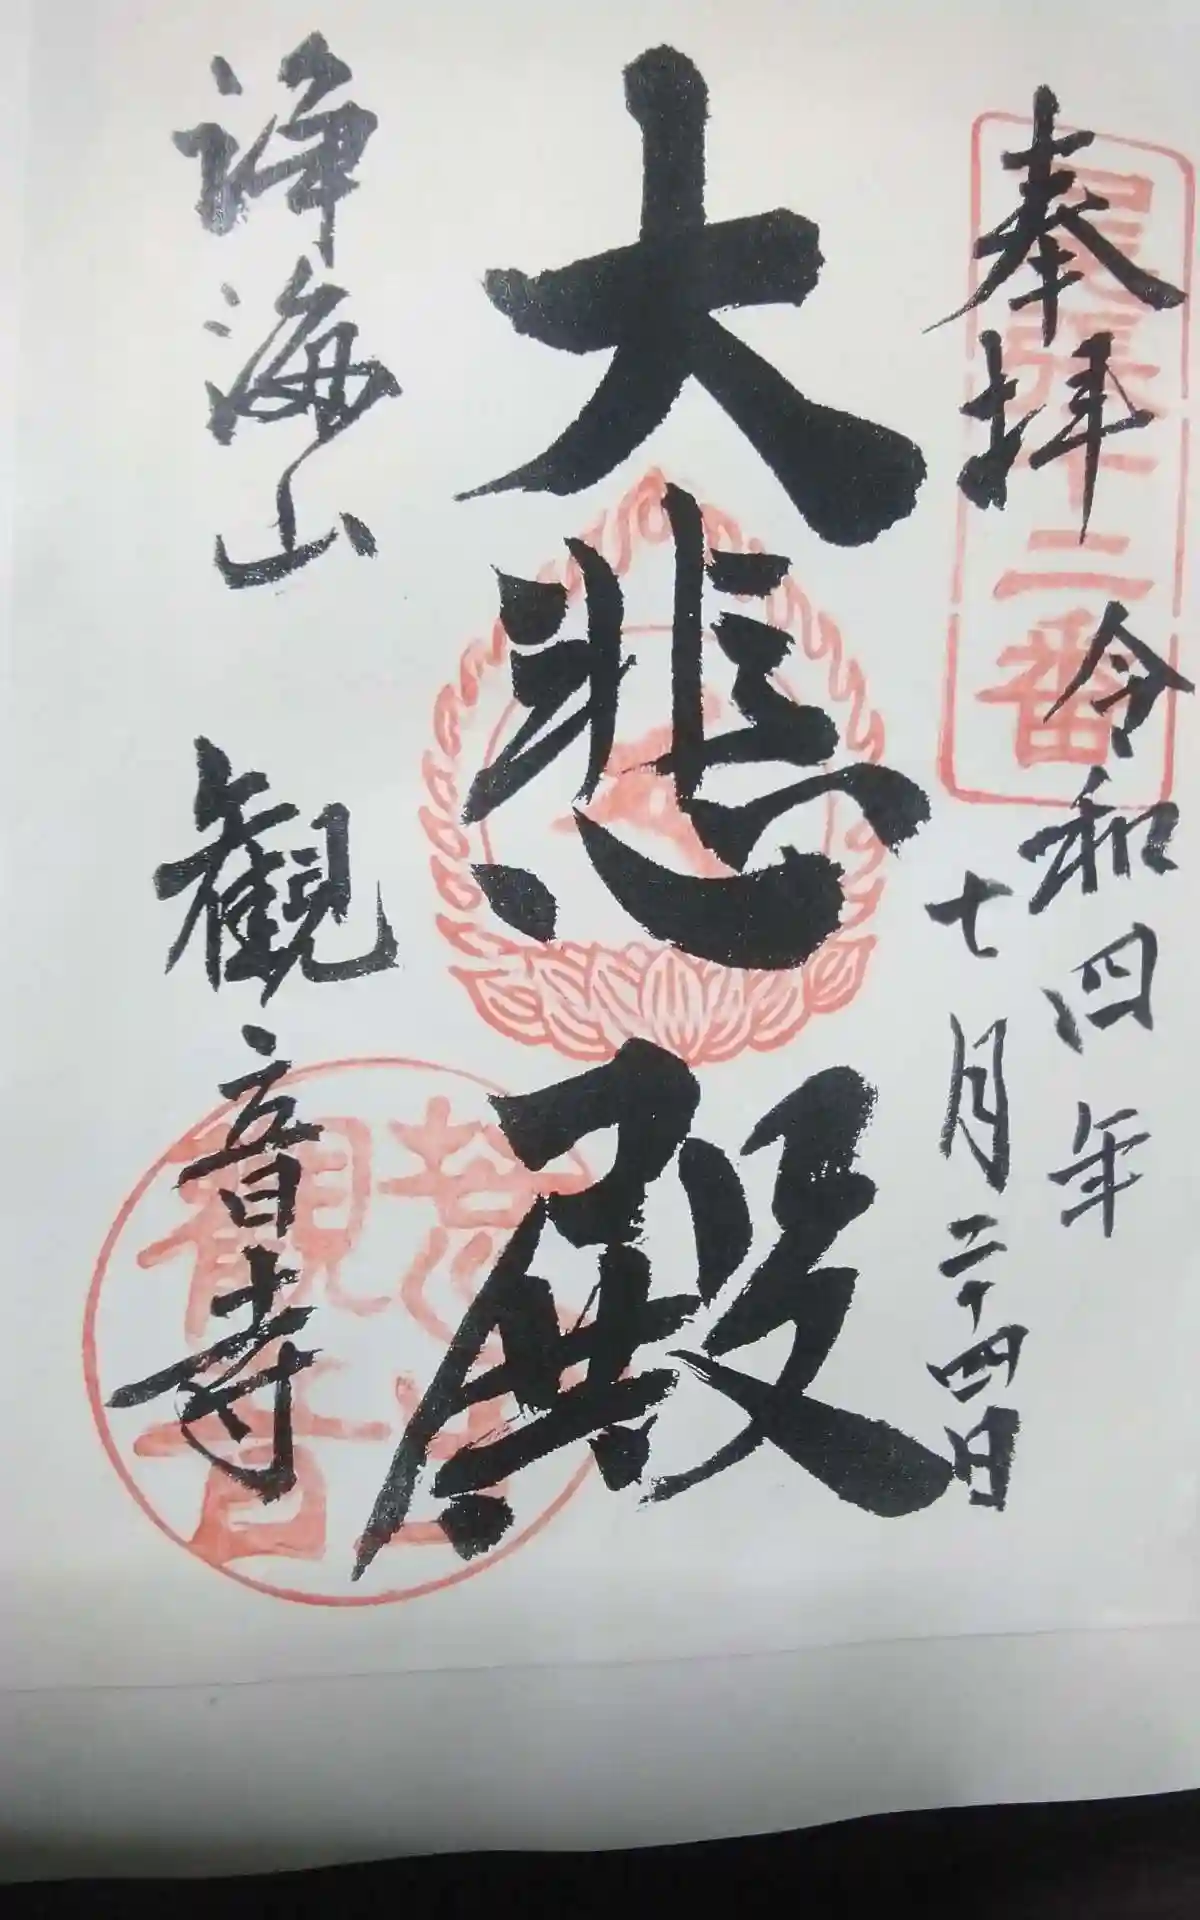 奉拝
尾張十二番
令和四年
七月二十四日
大悲殿
海山
観音寺
観音